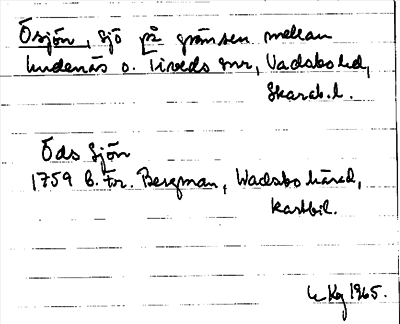 Ösjön, sjö på gränsen mellan
Undenäs o. Tiveds snr, Vadsbo hd,
Skarab.l.
Öds Sjön
1759 B. Fr. Bergman, Wadsbo härad,
kartbil.
1965.